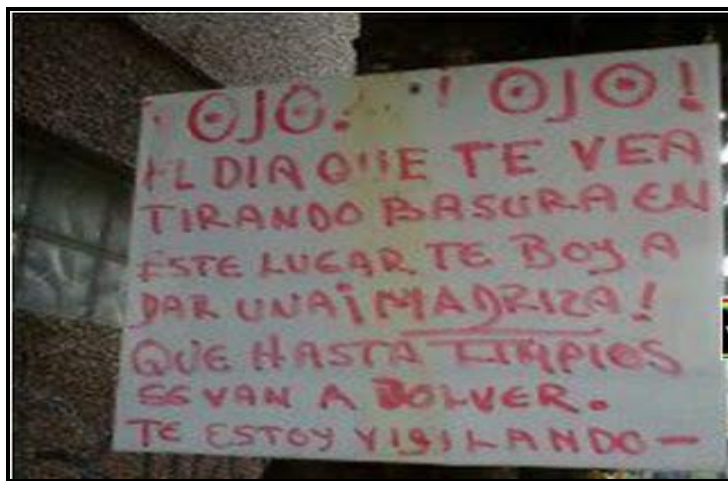 ¡OJO. ¡OJO!
EL DIA QUE TE VEA
TIRANDO BASURA EN
ESTE LUGAR TE BOY A
DAR UNA ¡MADRIZA!
QUE HASTA LIMPIOS
SE VAN A BOLVER.
TE ESTOY VIGILANDO—